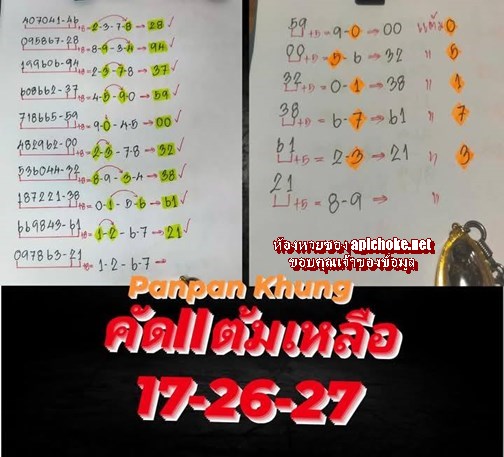 407041-46 +8 = 2-3-7-8 → 28 ✓
095867-28 +8 = 8-9-3-4 → 94 ✓
199606-94 +8 = 2-3-7-8 → 37 ✓
608662-37 +8 = 4-5-9-0 → 59 ✓
718665-59 +8 = 9-0-4-5 → 00 ✓
482962-00 +8 = 2-3-7-8 → 32 ✓
536044-32 +8 = 8-9-3-4 → 38 ✓
187221-38 +8 = 0-1-5-6 → 61 ✓
669843-61 +8 = 1-2-6-7 → 21 ✓
097863-21 +8 = 1-2-6-7 →
59 +5 = 9-0 → 00 แต้ม 0
00 +5 = 5-6 → 32 " 5
32 +5 = 0-1 → 38 " 1
38 +5 = 6-7 → 61 " 7
61 +5 = 2-3 → 21 " 3
21 +5 = 8-9 → "
ห้องหวยซอง apichoke.net
ขอบคุณเจ้าของข้อมูล
Panpan Khung
คัดllต้มเหลือ
17-26-27